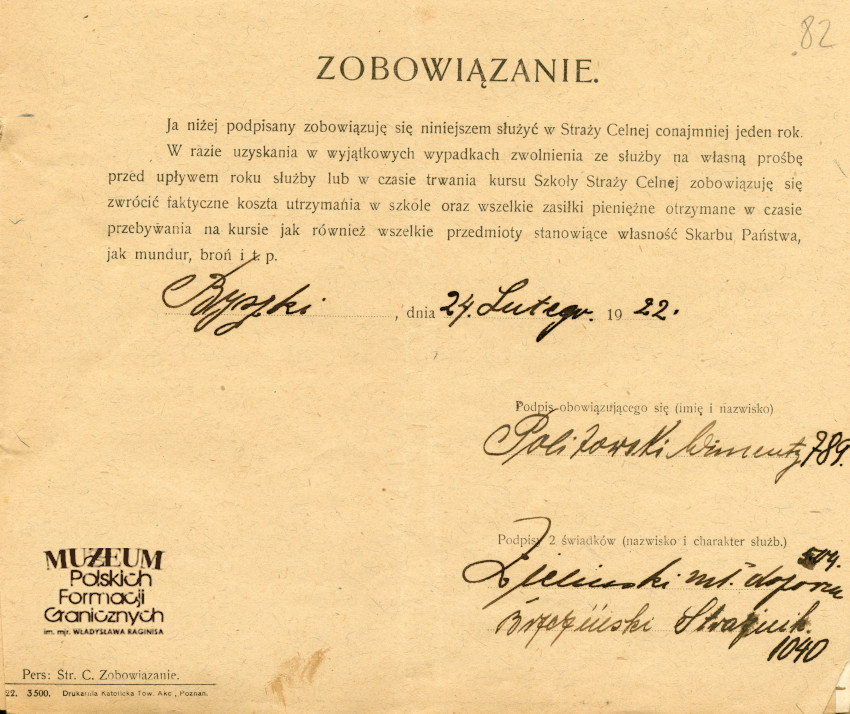 82
ZOBOWIĄZANIE.
Ja niżej podpisany zobowiązuję się niniejszem służyć w Straży Celnej conajmniej jeden rok.
W razie uzyskania w wyjątkowych wypadkach zwolnienia ze służby na własną prośbę
przed upływem roku służby lub w czasie trwania kursu Szkoły Straży Celnej zobowiązuję się
zwrócić faktyczne koszta utrzymania w szkole oraz wszelkie zasiłki pieniężne otrzymane w czasie
przebywania na kursie jak również wszelkie przedmioty stanowiące własność Skarbu Państwa,
jak mundur, broń i t. p.
, dnia 24. Lutego. 19 22.
Podpis obowiązującego się (imię i nazwisko)
Politowski 789.
Podpisy 2 świadków (nazwisko i charakter służb.)
504.
Zieliński mł. dozorca
Brzeziński Strażnik.
1040
MUZEUM
Polskich
Formacji
Granicznych
im. mjr. WŁADYSŁAWA RAGINISA
Pers: Str. C. Zobowiazanie.
22. 3500. Drukarnia Katolicka Tow. Akc., Poznań.